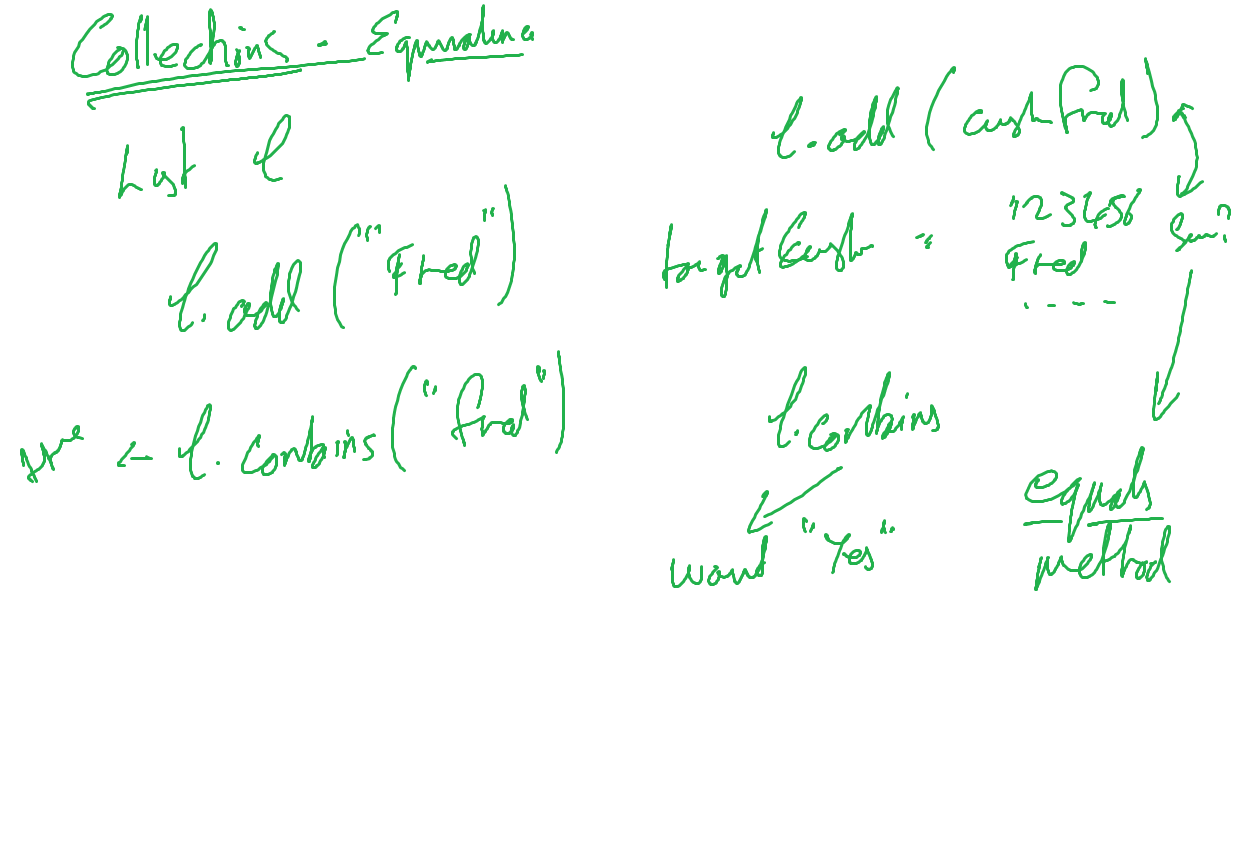 Collections - Equivalence
List l
l.add("Fred")
true ← l.contains("Fred")
l.add(custFred)
targetCust = 123456
Fred
....
Same?
l.contains
want "Yes"
equals
method